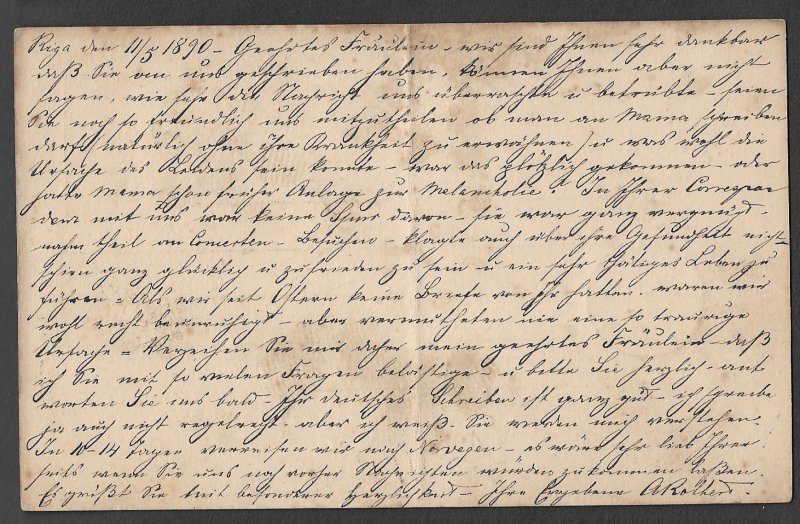 Riga den 11/5 1890 – Geehrtes Fräulein – wir sind Ihnen sehr dankbar
daß Sie an uns geschrieben haben, können Ihnen aber nicht
sagen, wie sehr die Nachricht uns überraschte u betrübte – seien
Sie noch so freundlich uns mitzutheilen ob man an Mama schreiben
darf (natürlich ohne ihre Krankheit zu erwähnen) u was wohl die
Ursache des Leidens sein konnte – war das plötzlich gekommen – oder
hatte Mama schon früher Anlage zur Melancholie? In Ihrer Correspon
denz mit uns war keine Spur davon – sie war ganz vergnügt –
nahm theil an Concerten – Besuchen – klagte auch über ihre Gesundheit nicht –
schien ganz glücklich u zufrieden zu sein – u ein sehr thätiges Leben zu
führen = Als wir seit Ostern keine Briefe von Ihr hatten, waren wir
wohl recht beunruhigt – aber vermutheten nie eine so traurige
Ursache = Verzeihen Sie mir daher mein geehrtes Fräulein – daß
ich Sie mit so vielen Fragen belästige – u bitte Sie herzlich – ant
worten Sie uns bald – Ihr deutsches Schreiben ist ganz gut – ich schreibe
ja auch nicht regelrecht – aber ich weiß – Sie werden mich verstehen.
In 10–14 Tagen verreisen wir nach Norwegen – es wäre sehr lieb Ihrer
seits wenn Sie uns noch vorher Nachrichten würden zukommen laßen.
Es grüßt Sie mit besonderer Herzlichkeit – Ihre Ergebene